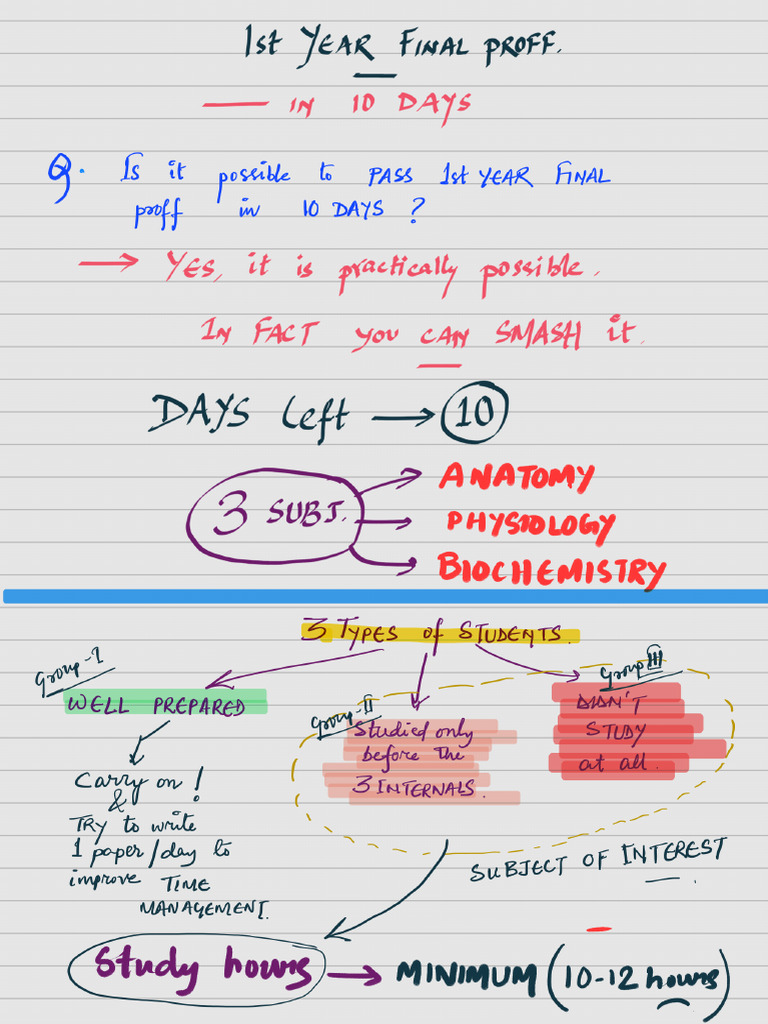 1st YEAR FINAL PROFF.
— IN 10 DAYS
Q. Is it possible to PASS 1st YEAR FINAL
proff in 10 DAYS ?
→ YES, it is practically possible.
IN FACT YOU CAN SMASH it.
DAYS left → 10
3 SUBJ.
ANATOMY
PHYSIOLOGY
BIOCHEMISTRY
3 TYPES of STUDENTS.
Group-I
WELL PREPARED
Group-II
Studied only
before the
3 INTERNALS.
Group III
DIDN'T
STUDY
at all.
Carry on !
&
TRY to write
1 paper/day to
improve TIME
MANAGEMENT.
SUBJECT OF INTEREST
Study hours → MINIMUM (10-12 hours)